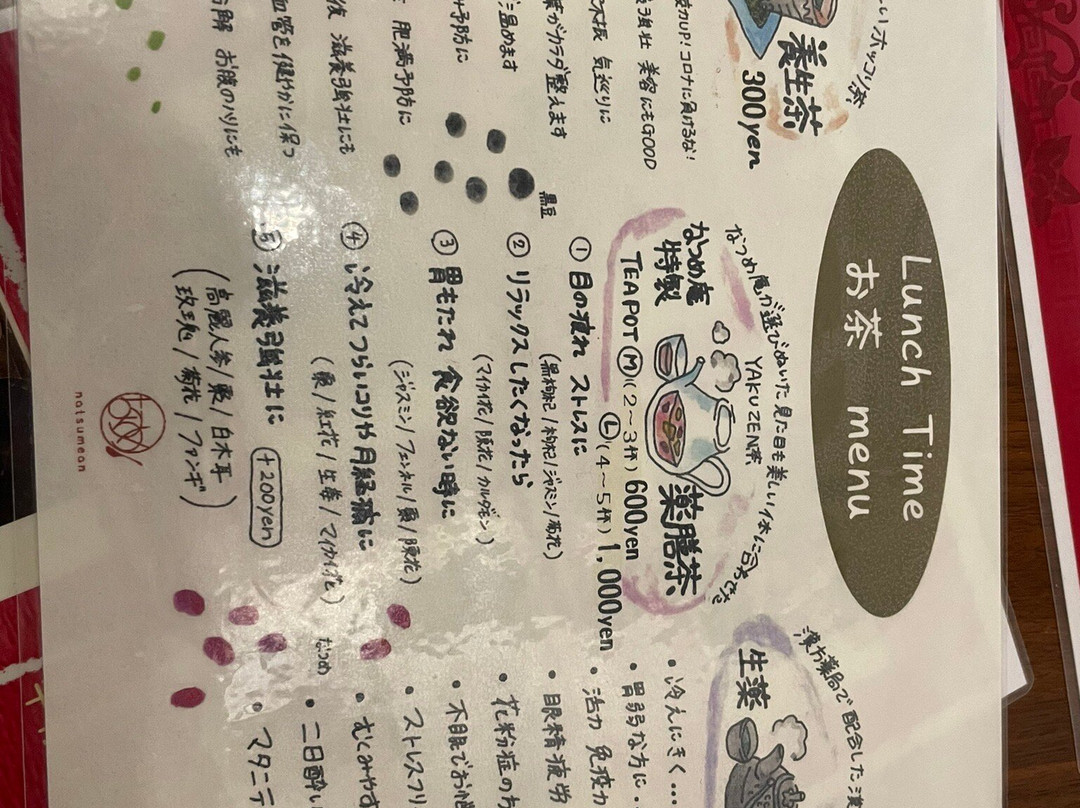 Lunch Time
お茶 menu
しいホッコリ茶
養生茶
300yen
力UP!コロナに負けるな!
美容にもGOOD
気巡りに
カラダ整えます
温めます
予防に
肥満予防に
滋養強壮にも
血管を健やかに保つ
お腹のハリにも
黒豆
なつめ庵が選びぬいた見た目も美しい
YAKUZEN茶
なつめ庵
特製
薬膳茶
TEAPOT Ⓜ(2~3杯) 600yen
Ⓛ(4~5杯) 1,000yen
① 目の疲れ ストレスに
(黒枸杞/枸杞/ジャスミン/菊花)
② リラックスしたくなったら
(マイカイ花/陳花/カルダモン)
③ 胃もたれ 食欲ない時に
(ジャスミン/フェンネル/棗/陳花)
④ 冷えてつらいコリや月経痛に
(棗/紅花/生姜/マイカイ花)
⑤ 滋養強壮に +200yen
(高麗人参/棗/白木耳
玫瑰/菊花/ファンギ)
なつめ
natsumean
漢方薬局で配合した漢
生薬
・冷えにきく...
・胃弱な方に
・活力 免疫力
・眼精疲労
・花粉症の方
・不眠でお悩
・ストレスフリ
・むくみやす
・二日酔い
・マタニテ